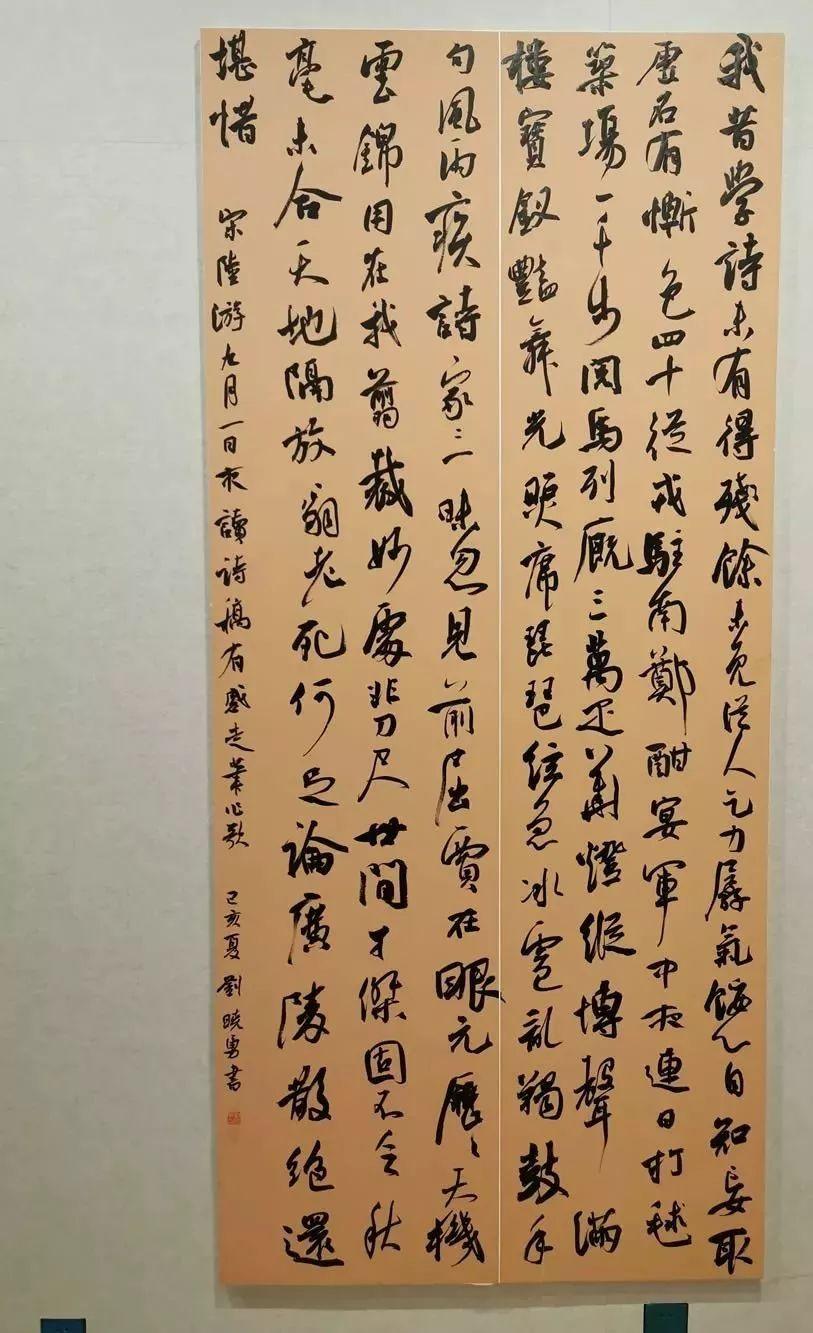 我昔學詩未有得殘餘未免從人乞力孱氣餒心自知妄取
虛名有慚色四十從戎駐南鄭酣宴軍中夜連日打毬
築場一千步閱馬列廄三萬疋華燈縱博聲滿
樓寶釵豔舞光照席琵琶絃急冰雹乱羯鼓手
勻風雨疾詩家三昧忽見前屈賈在眼元歷〻天機
雲錦用在我翦裁妙處非刀尺世間才傑固不乏秋
毫未合天地隔放翁老死何足論廣陵散絕還
堪惜 宋陸游九月一日夜讀詩稿有感走筆作歌 己亥夏劉曉勇書